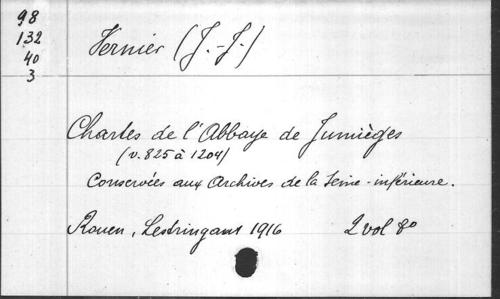 98
132
40
3
Vernier (J.-J.)
Chartes de l'Abbaye de Jumièges
(v. 825 à 1204)
Conservées aux Archives de la Seine-inférieure.
Rouen, Lestringant 1916 2 vol 8o